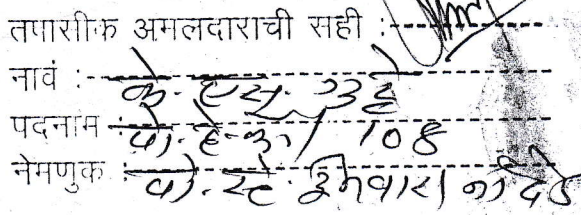 तपासीक अमलदाराची सही :
नावं :- के. एस. उदे
पदनाम :- पो. हे. कॉ / 108
नेमणुक :- पो. स्टे. इतवारा नांदेड